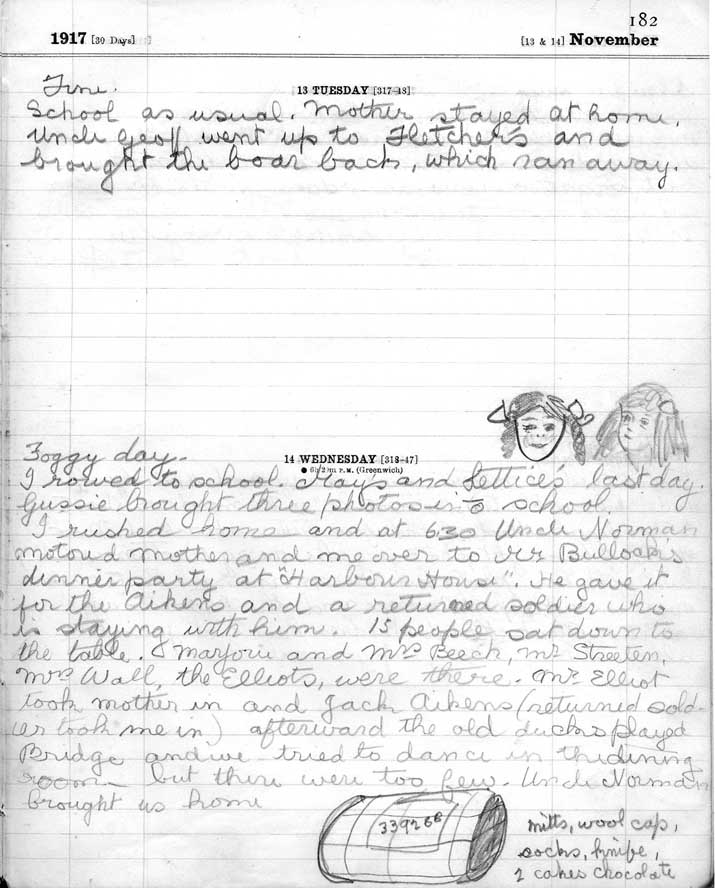 182
1917 [30 Days] [13 & 14] November
13 TUESDAY [317-48]
Fine.
School as usual. Mother stayed at home.
Uncle Geoff went up to Fletcher's and
brought the boar back, which ran away.
Foggy day.
14 WEDNESDAY [318-47]
P.M. (Greenwich)
I rowed to school. Mays and Lettice's last day.
Gussie brought three photos to school.
I rushed home and at 630 Uncle Norman
motored mother and me over to Mr Bullock's
dinner party at "Harbour House". He gave it
for the Aikens and a returned soldier who
is staying with him. 15 people sat down to
the table. Marjorie and Mrs Beech, Mr Streeten,
Mrs Wall, the Elliots, were there. Mr Elliot
took mother in and Jack Aikens (returned sold-
ier took me in) afterward the old ducks played
Bridge and we tried to dance in the dining
room but there were too few. Uncle Norman
brought us home
339266
mitts, wool cap,
socks, knife,
2 cakes chocolate